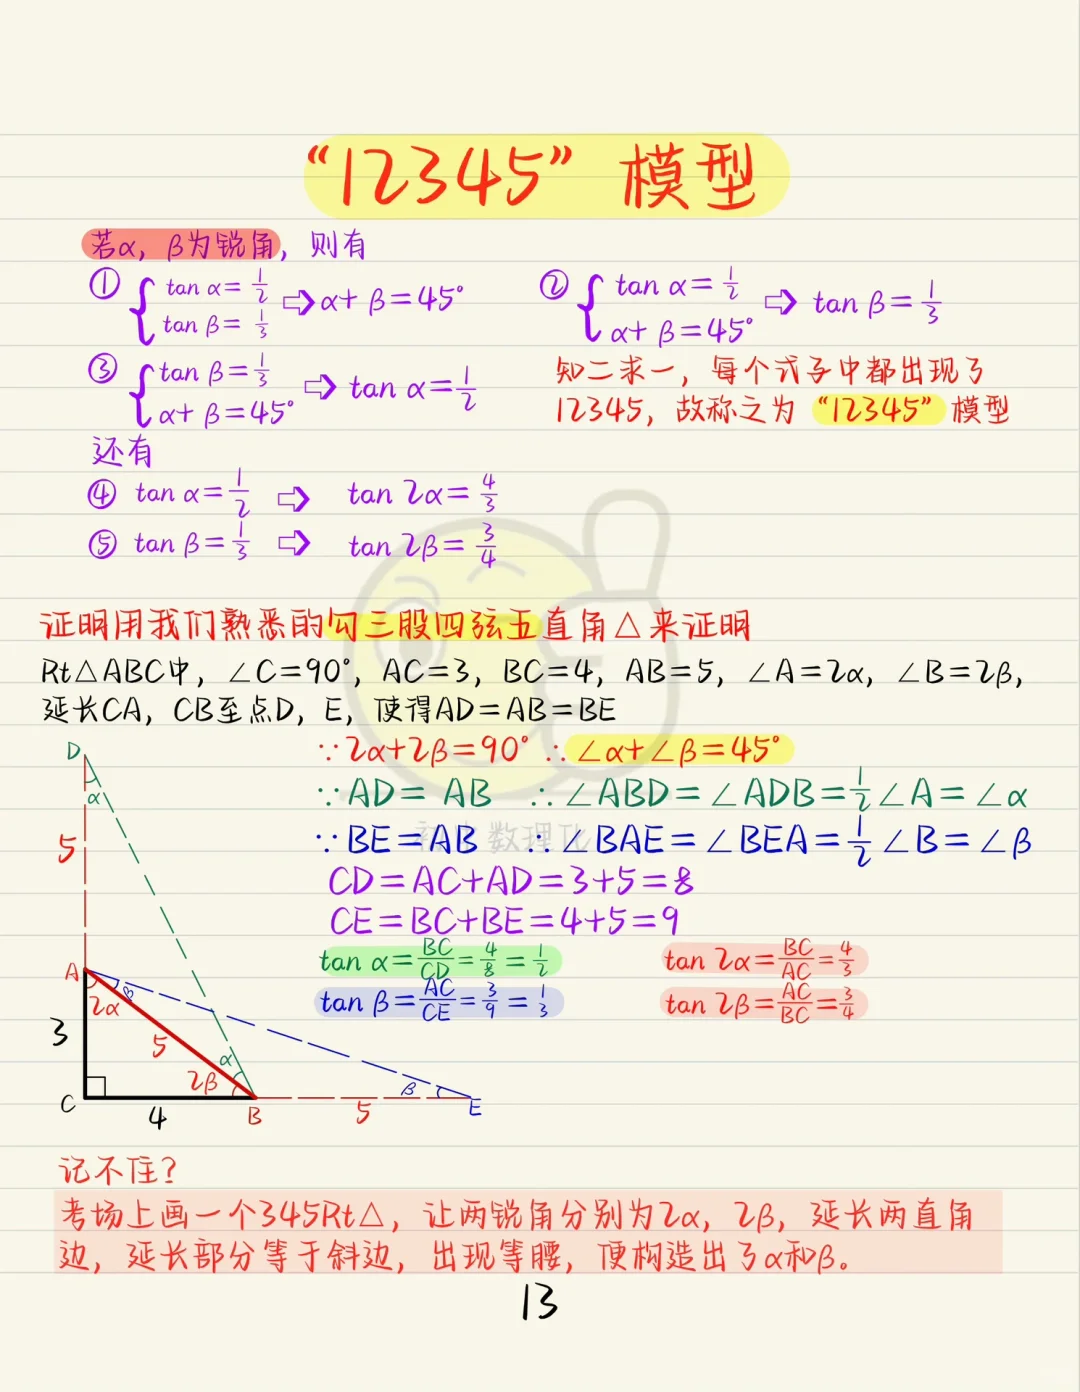 “12345”模型
若α, β为锐角, 则有
① { tan α = 1/2 tan β = 1/3 ⇨ α + β = 45°
② { tan α = 1/2 α + β = 45° ⇨ tan β = 1/3
③ { tan β = 1/3 α + β = 45° ⇨ tan α = 1/2
知二求一, 每个式子中都出现了
12345, 故称之为 “12345” 模型
还有
④ tan α = 1/2 ⇨ tan 2α = 4/3
⑤ tan β = 1/3 ⇨ tan 2β = 3/4
证明用我们熟悉的勾三股四弦五直角△来证明
Rt△ABC中, ∠C=90°, AC=3, BC=4, AB=5, ∠A=2α, ∠B=2β,
延长CA, CB至点D, E, 使得AD=AB=BE
∵2α+2β=90° ∴∠α+∠β=45°
∵AD=AB ∴∠ABD=∠ADB=1/2∠A=∠α
∵BE=AB ∴∠BAE=∠BEA=1/2∠B=∠β
初中数理化
CD=AC+AD=3+5=8
CE=BC+BE=4+5=9
tan α=BC/CD=4/8=1/2 tan 2α=BC/AC=4/3
tan β=AC/CE=3/9=1/3 tan 2β=AC/BC=3/4
D
α
5
A
2α β
3
5
α
2β β
C B E
4 5
记不住?
考场上画一个345Rt△, 让两锐角分别为2α, 2β, 延长两直角
边, 延长部分等于斜边, 出现等腰, 便构造出了α和β。
13